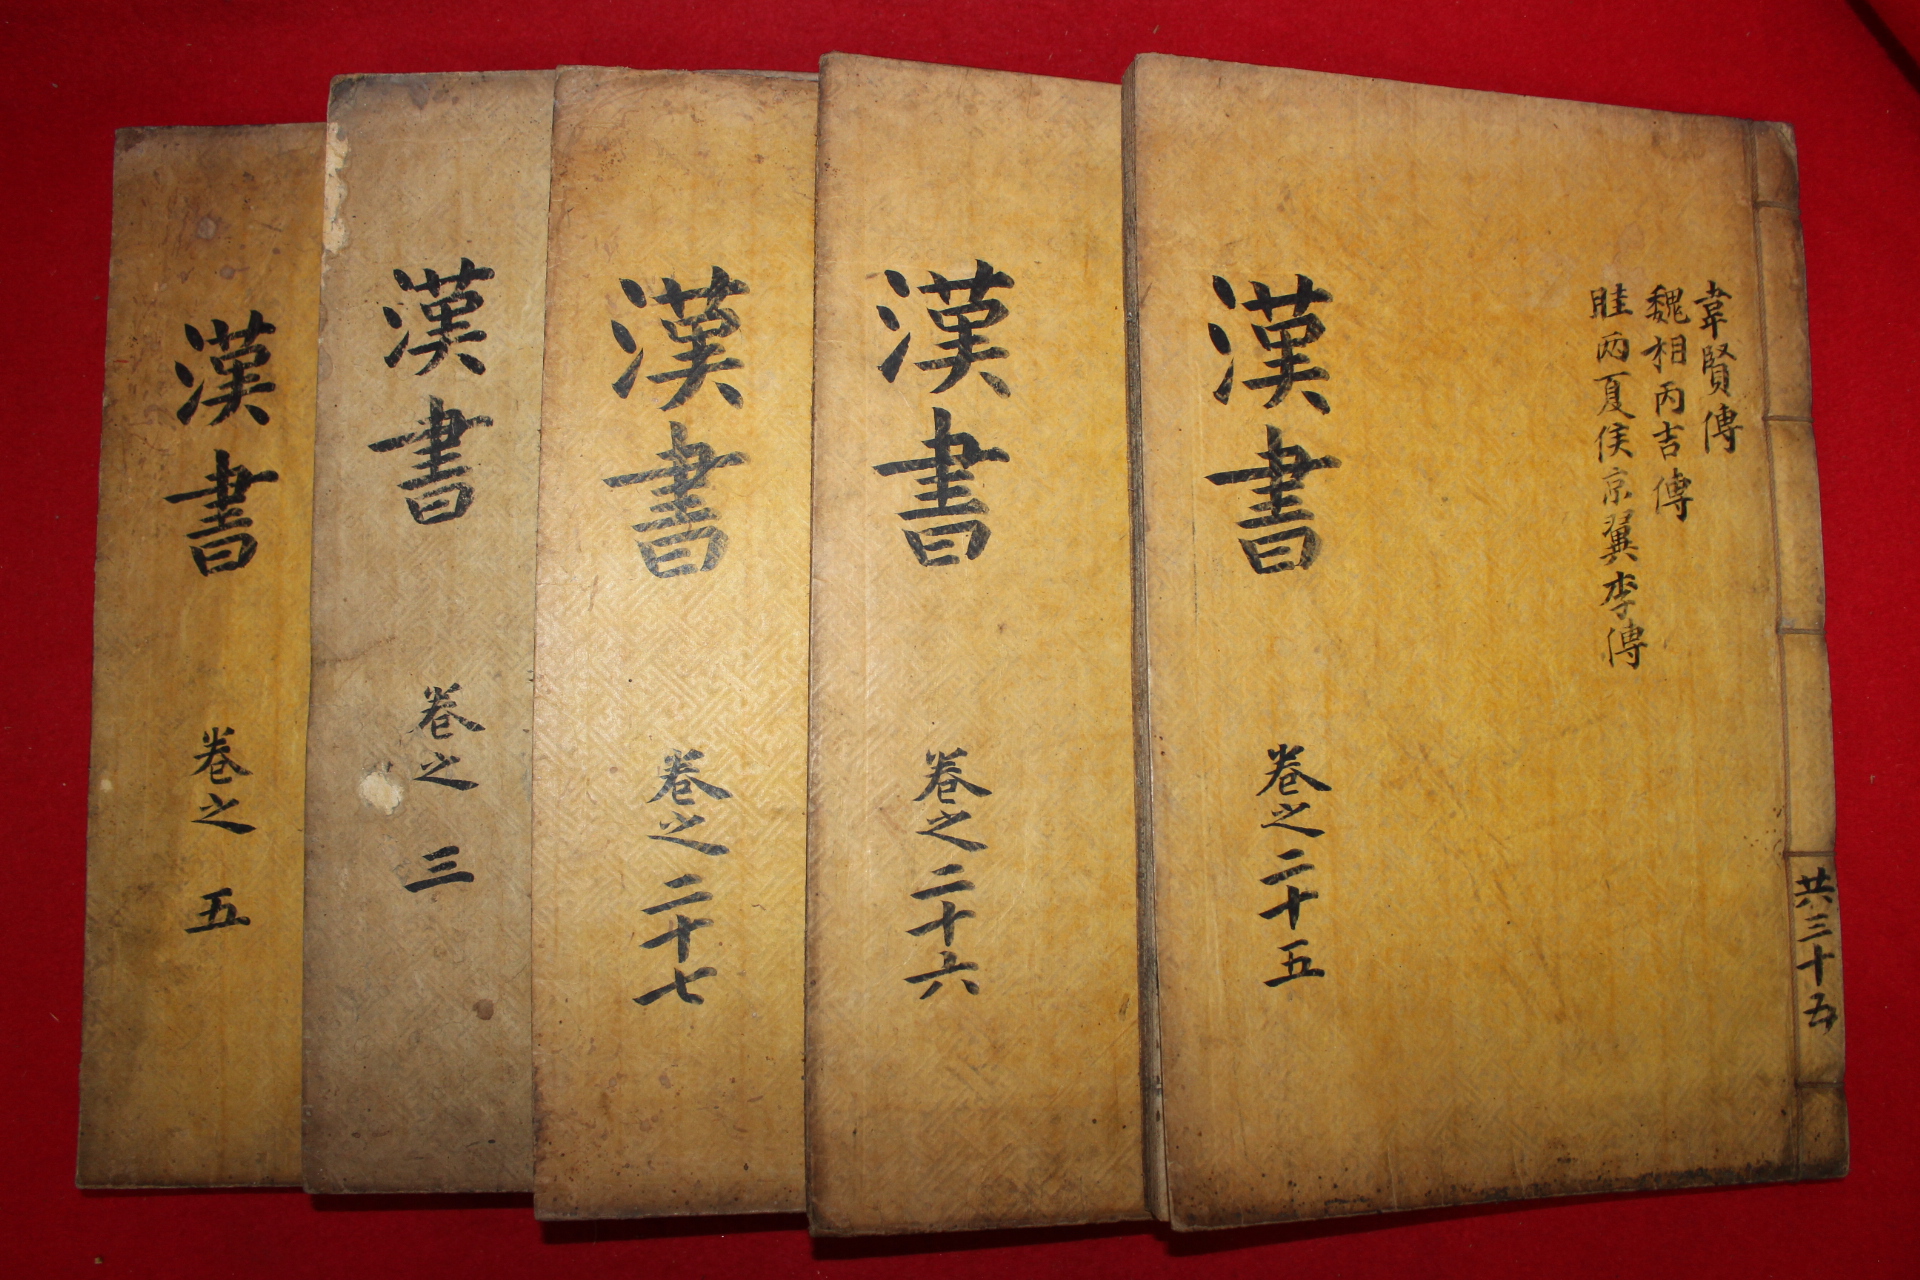 韋賢傳
魏相丙吉傳
眭兩夏侯京翼李傳
漢書 卷之二十五
共三十五
漢書 卷之二十六
漢書 卷之二十七
漢書 卷之三
漢書 卷之五